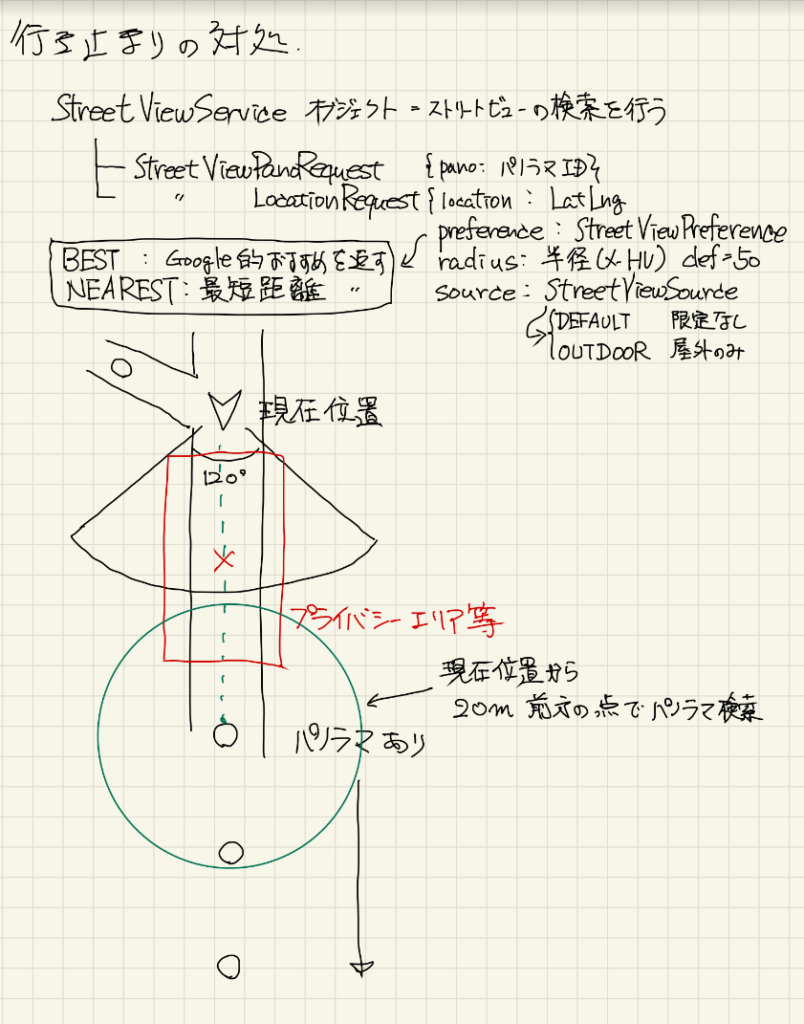 行き止まりの対処.
StreetViewService オブジェクト = ストリートビューの検索を行う
StreetViewPanoRequest {pano: パノラマID}
〃 LocationRequest {location : LatLng
preference : StreetViewPreference
radius: 半径(メートル) def=50
source : StreetViewSource
DEFAULT 限定なし
OUTDOOR 屋外のみ
BEST : Google的おすすめを返す
NEAREST : 最短距離 〃
現在位置
120°
×
プライバシーエリア等
現在位置から
20m 前方の点でパノラマ検索
パノラマあり